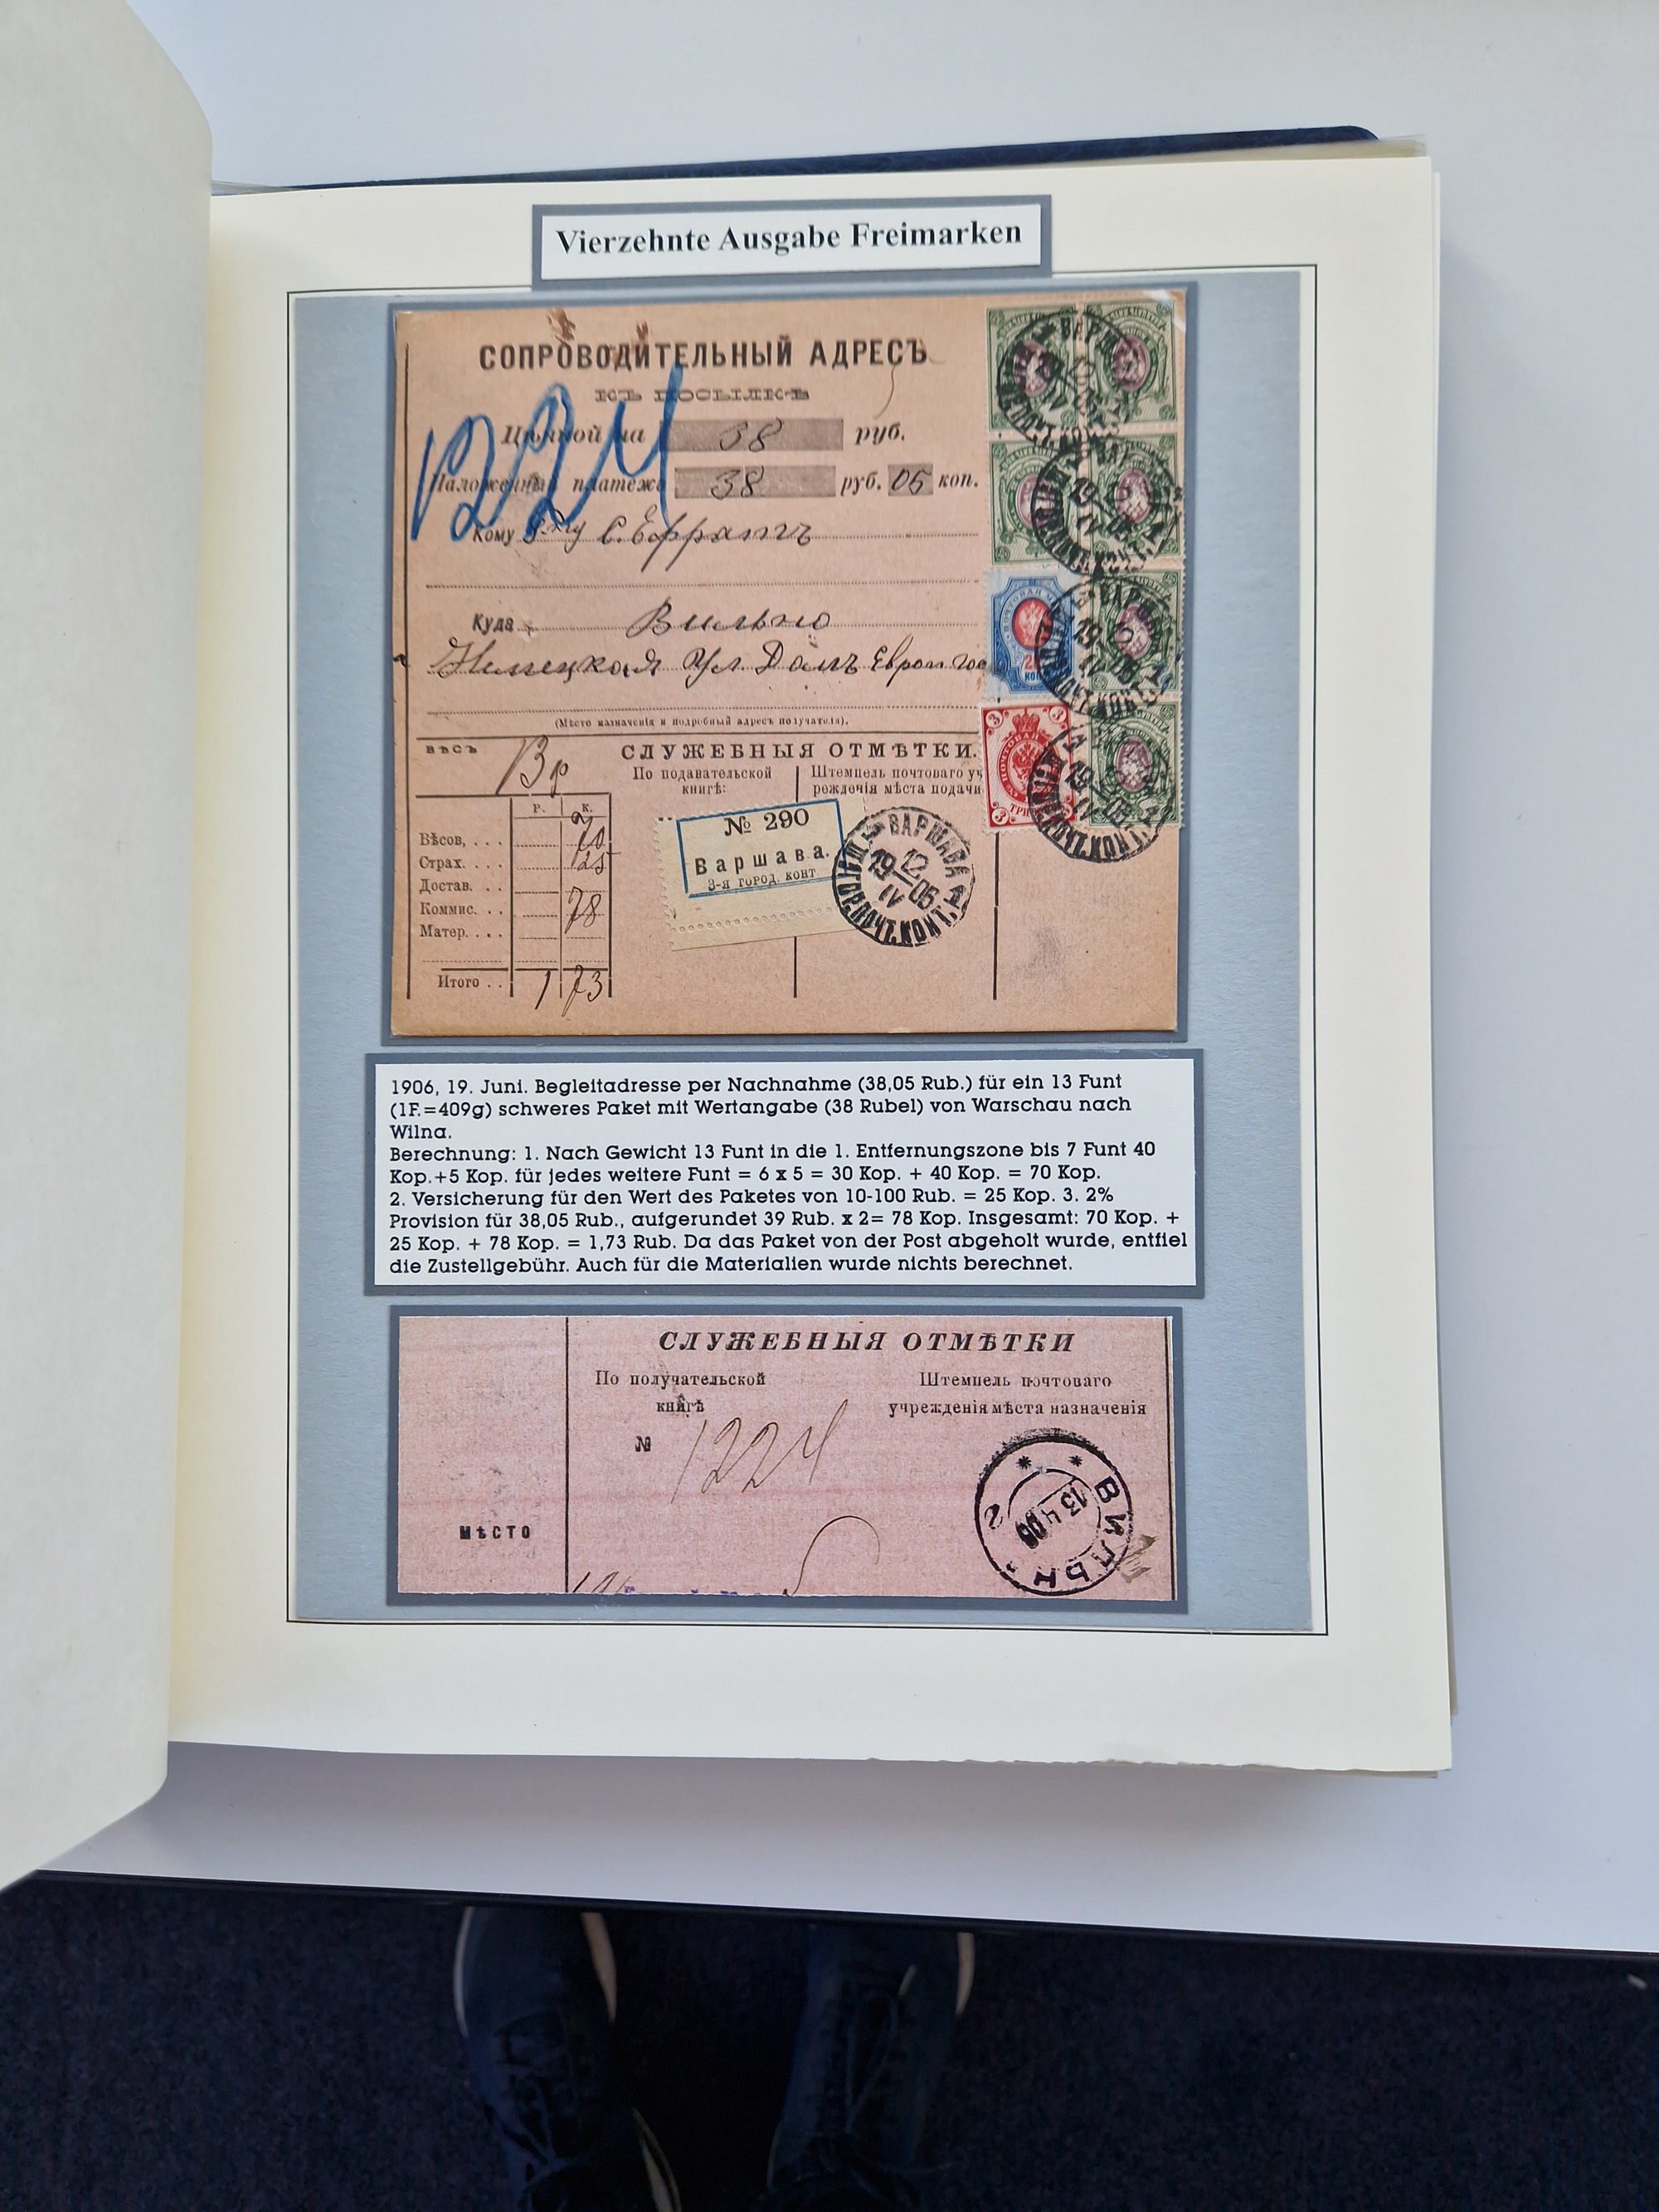 Vierzehnte Ausgabe Freimarken
СОПРОВОДИТЕЛЬНЫЙ АДРЕСЪ
КЪ ПОСЫЛКѢ
1224
Цѣнной на 38 руб.
Наложенный платежъ 38 руб. 05 коп.
Кому
Куда Вильно
Нѣмецкая Ул Домъ
(Мѣсто назначенія и подробный адресъ получателя).
ВѢСЪ
СЛУЖЕБНЫЯ ОТМѢТКИ.
По подавательской
книгѣ:
Штемпель почтоваго уч
режденія мѣста подачи
Р. К.
Вѣсов, . . . 70
Страх. . . . 25
Достав. . .
Коммис. . . 78
Матер. . . .
Итого . . 1 73
№ 290
Варшава.
3-я ГОРОД. КОНТ
ВАРШАВА
12
19—06
IV
ГОР.ПОЧТ.КОНТ.
3 3
3 ТРИ
1906, 19. Juni. Begleitadresse per Nachnahme (38,05 Rub.) für ein 13 Funt
(1F.=409g) schweres Paket mit Wertangabe (38 Rubel) von Warschau nach
Wilna.
Berechnung: 1. Nach Gewicht 13 Funt in die 1. Entfernungszone bis 7 Funt 40
Kop.+5 Kop. für jedes weitere Funt = 6 x 5 = 30 Kop. + 40 Kop. = 70 Kop.
2. Versicherung für den Wert des Paketes von 10-100 Rub. = 25 Kop. 3. 2%
Provision für 38,05 Rub., aufgerundet 39 Rub. x 2= 78 Kop. Insgesamt: 70 Kop. +
25 Kop. + 78 Kop. = 1,73 Rub. Da das Paket von der Post abgeholt wurde, entfiel
die Zustellgebühr. Auch für die Materialien wurde nichts berechnet.
СЛУЖЕБНЫЯ ОТМѢТКИ
По получательской
книгѣ
№ 1224
Штемпель почтоваго
учрежденія мѣста назначенія
МѢСТО
ВИЛЬН
13 4 06
2